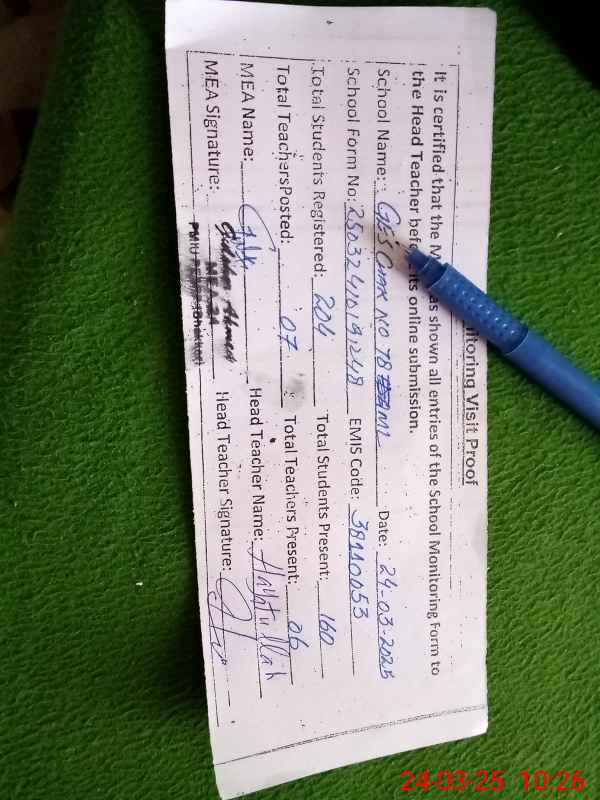 nitoring Visit Proof
It is certified that the M as shown all entries of the School Monitoring Form to
the Head Teacher before its online submission.
School Name: GES CHAK NO 78 ML Date: 24-03-2025
School Form No: 25032410191248 EMIS Code: 38110053
Total Students Registered: 204 Total Students Present: 160
Total TeachersPosted: 07 Total Teachers Present: 06
MEA Name: Head Teacher Name: Hayatullah
MEA Signature: Ahmed Head Teacher Signature:
24-03-25 10:26